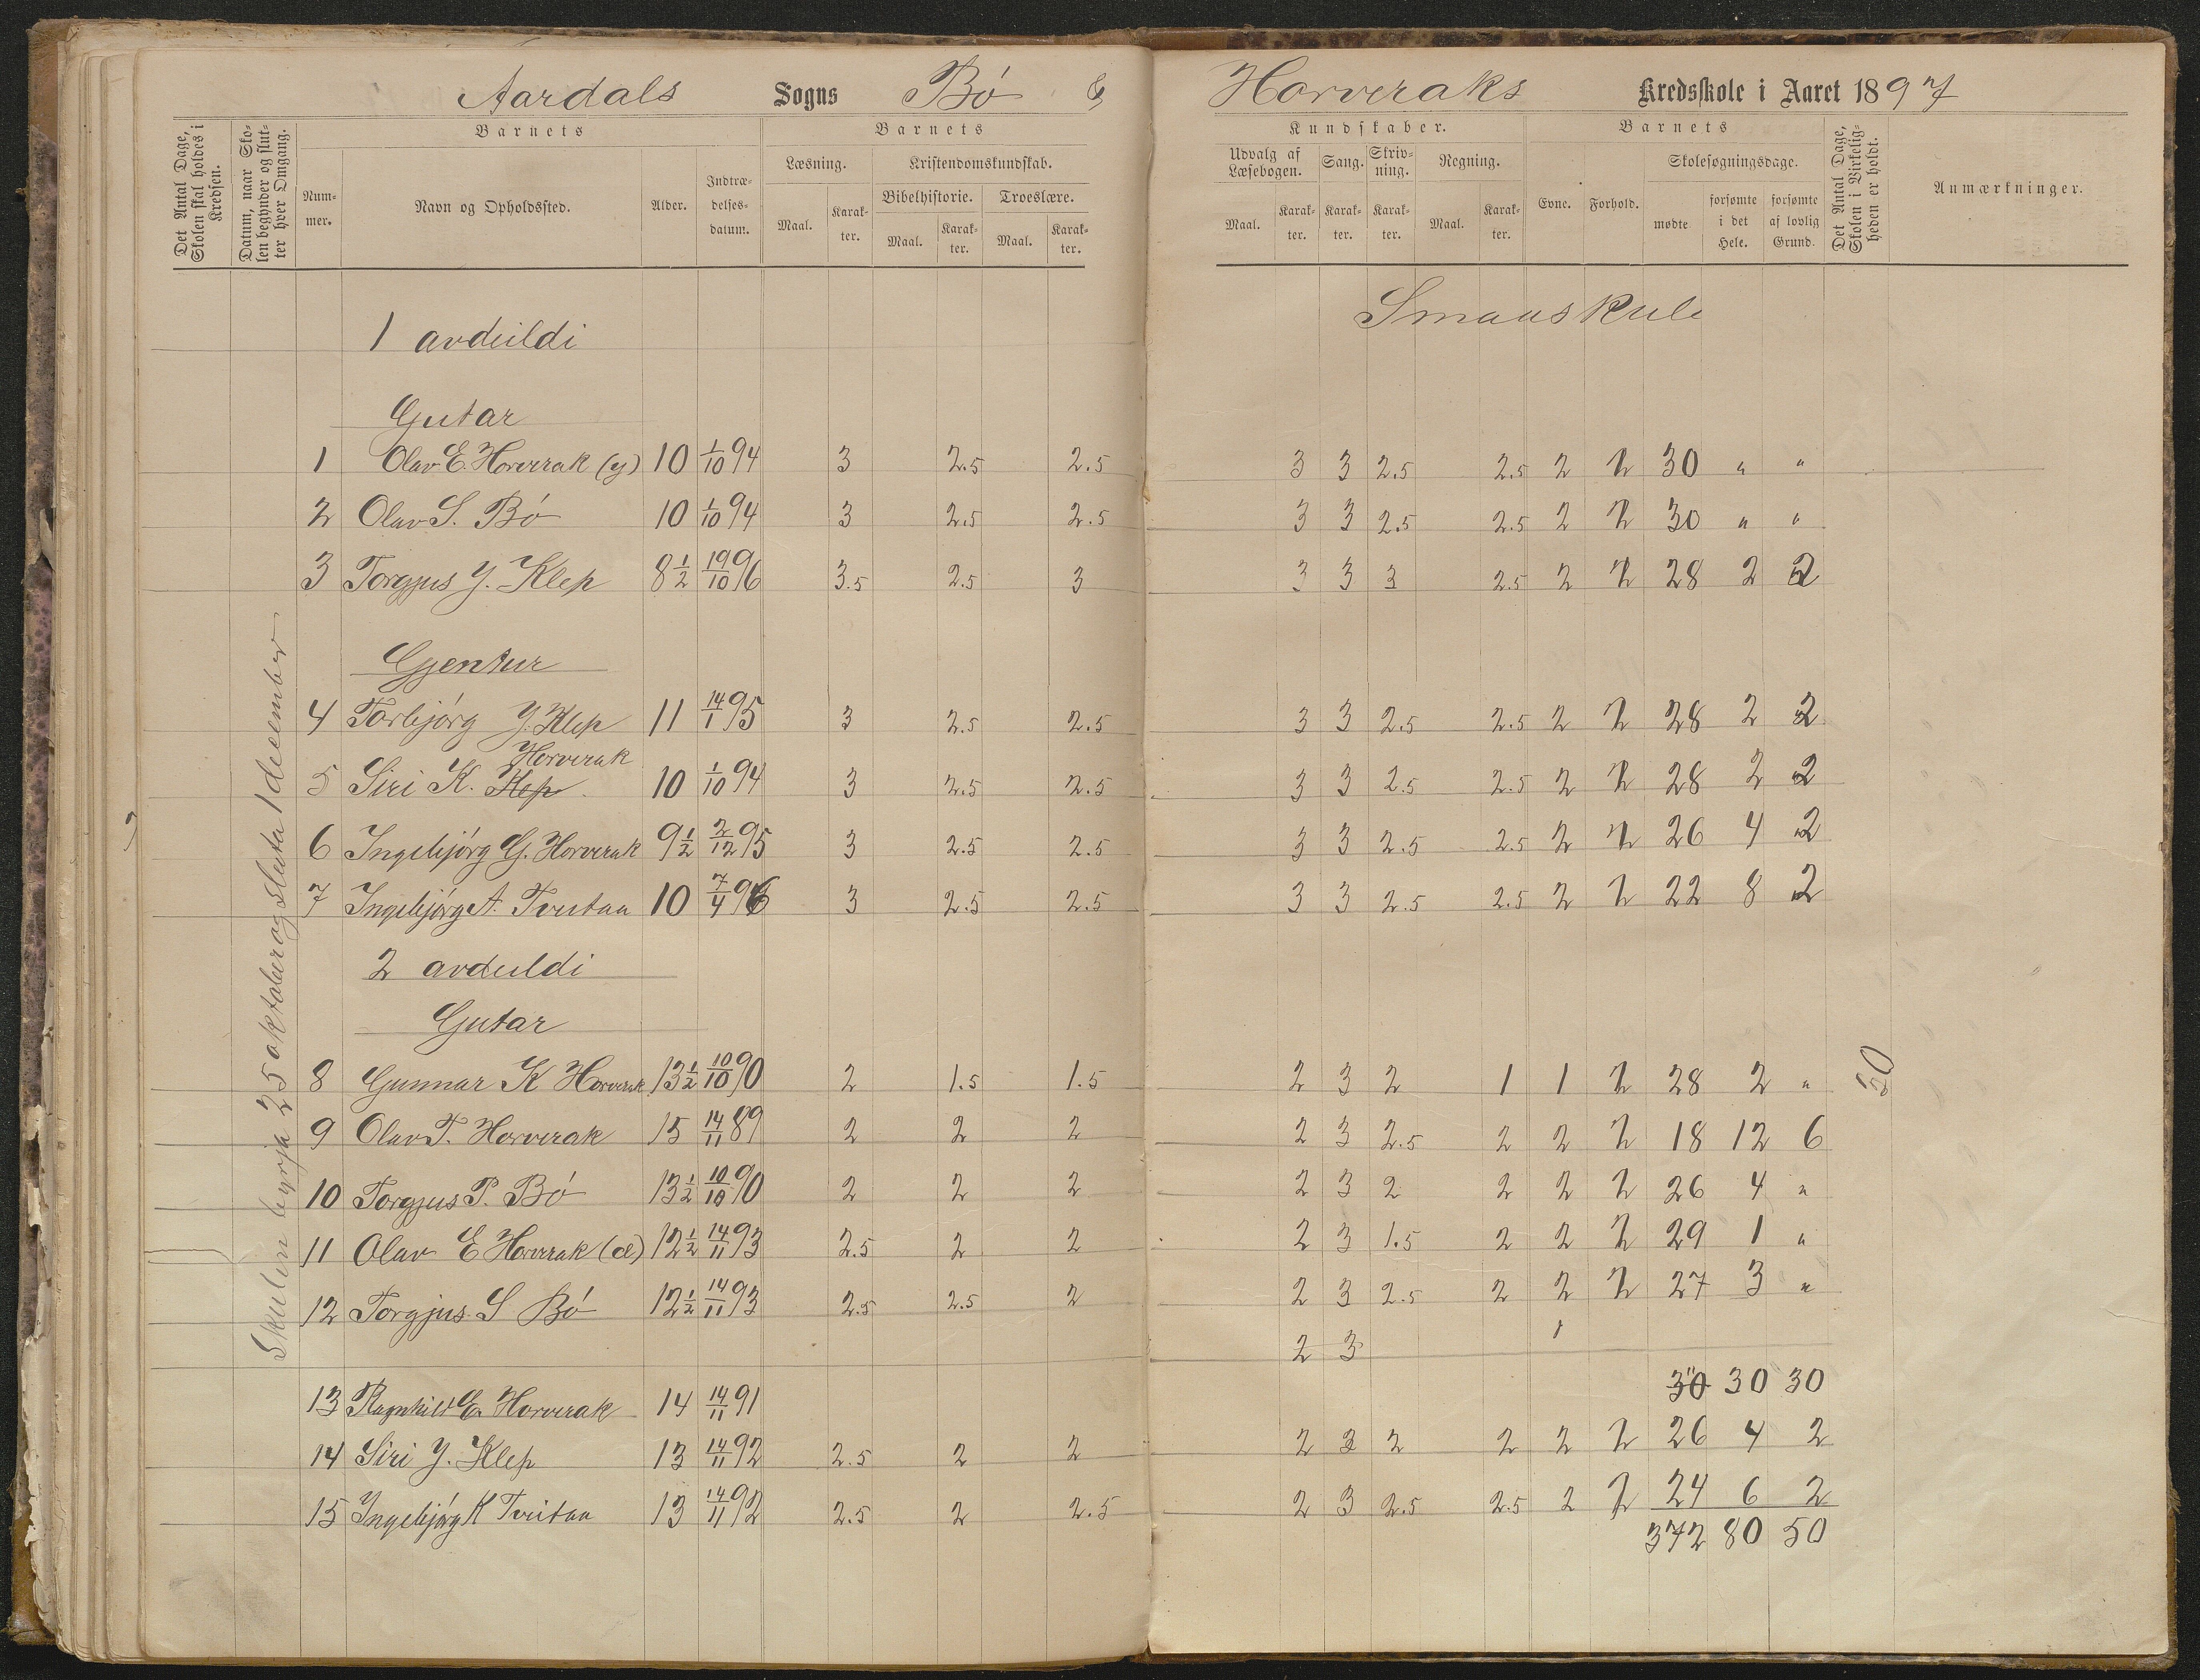 Aardals Sogns Bø & Horveraks Kredsskole i Aaret 1897
Det Antal Dage, Skolen skal holdes i Kredsen.
Datum, naar Skolen begynder og slutter hver Omgang.
Barnets
Nummer.
Navn og Opholdssted.
Alder.
Indtrædelsesdatum.
Barnets
Læsning.
Maal.
Karakter.
Kristendomskundskab.
Bibelhistorie.
Maal.
Karakter.
Troeslære.
Maal.
Karakter.
Kundskaber.
Udvalg af Læsebogen.
Maal.
Karakter.
Sang.
Karakter.
Skrivning.
Karakter.
Regning.
Maal.
Karakter.
Barnets
Evne.
Forhold.
Skolesøgningsdage.
mødte
forsømte i det Hele.
forsømte af lovlig Grund.
Det Antal Dage, Skolen i Virkeligheden er holdt.
Anmærkninger.
Smaaskule
1 avdeildi
Gutar
1 Olav E. Horverak (y) 10 1/10 94 3 2.5 2.5 3 3 2.5 2.5 2 2 30 " "
2 Olav S. Bø 10 1/10 94 3 2.5 2.5 3 3 2.5 2.5 2 2 30 " "
3 Torgjus Y. Klep 8 1/2 19/10 96 3.5 2.5 3 3 3 3 2.5 2 2 28 2 2
Gjentur
4 Torbjørg Y. Klep 11 14/1 95 3 2.5 2.5 3 3 2.5 2.5 2 2 28 2 2
Horverak
5 Siri K. Klep 10 1/10 94 3 2.5 2.5 3 3 2.5 2.5 2 2 28 2 2
6 Ingebjørg G. Horverak 9 1/2 2/12 95 3 2.5 2.5 3 3 2.5 2.5 2 2 26 4 2
7 Ingebjørg A. Tveitaa 10 7/4 96 3 2.5 2.5 3 3 2.5 2.5 2 2 22 8 2
2 avdeildi
Gutar
8 Gunnar K Horverak 13 1/2 10/10 90 2 1.5 1.5 2 3 2 1 1 2 28 2 "
9 Olav T. Horverak 15 14/11 89 2 2 2 2 3 2.5 2 2 2 18 12 6
10 Torgjus P. Bø 13 1/2 10/10 90 2 2 2 2 3 2 2 2 2 26 4 "
11 Olav E Horverak (e) 12 1/2 14/11 93 2.5 2 2 2 3 1.5 2 2 2 29 1 "
12 Torgjus S Bø 12 1/2 14/11 93 2.5 2.5 2 2 3 2.5 2 2 2 27 3 "
2 3
13 Ragnhild E. Horverak 14 14/11 91 30 30 30
14 Siri Y. Klep 13 14/11 92 2.5 2 2 2 3 2 2 2 2 26 4 2
15 Ingebjørg K Tveitaa 13 14/11 92 2.5 2 2.5 2 3 2.5 2.5 2 2 24 6 2
372 80 50
Skulen byrja 25 oktober og sluta 1 december
30